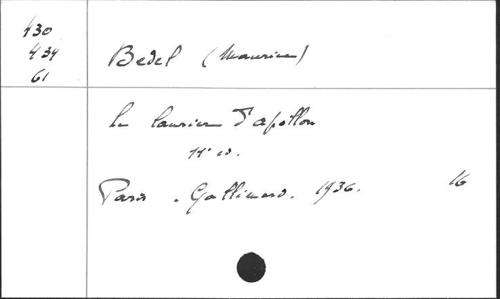 430
434
61
Bedel (Maurice)
Le laurier d'apollon
11e ed.
Paris. Gallimard. 1936. 16